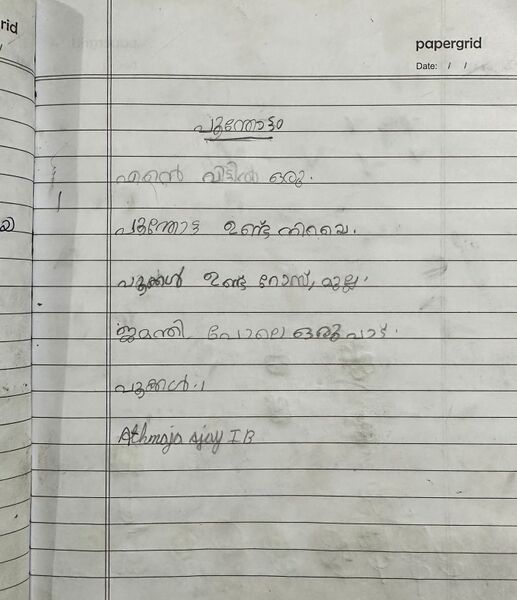 rid
papergrid
Date: / /
പൂന്തോട്ടം
എന്റെ വീട്ടിൽ ഒരു.
പൂന്തോട്ട ഉണ്ട് നിറയെ.
പൂക്കൾ ഉണ്ട് റോസ്, മുല്ല.
ജമന്തി, പോലെ ഒരുപാട്.
പൂക്കൾ..
Athmaja ajay I B